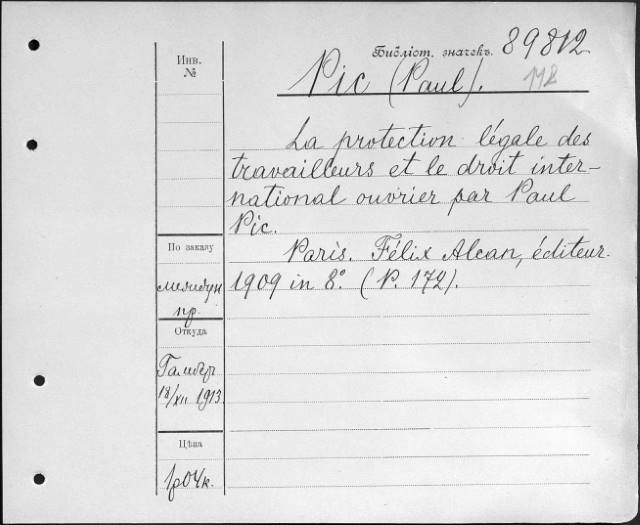 Библіот. значекъ. 89812
Инв.
№
Pic (Paul).
La protection légale des
travailleurs et le droit inter-
national ouvrier par Paul
Pic.
По заказу
Paris. Félix Alcan, éditeur.
1909 in 8º. (P. 172).
пр.
Откуда
18/XII 1913.
Цѣна
1р04к.